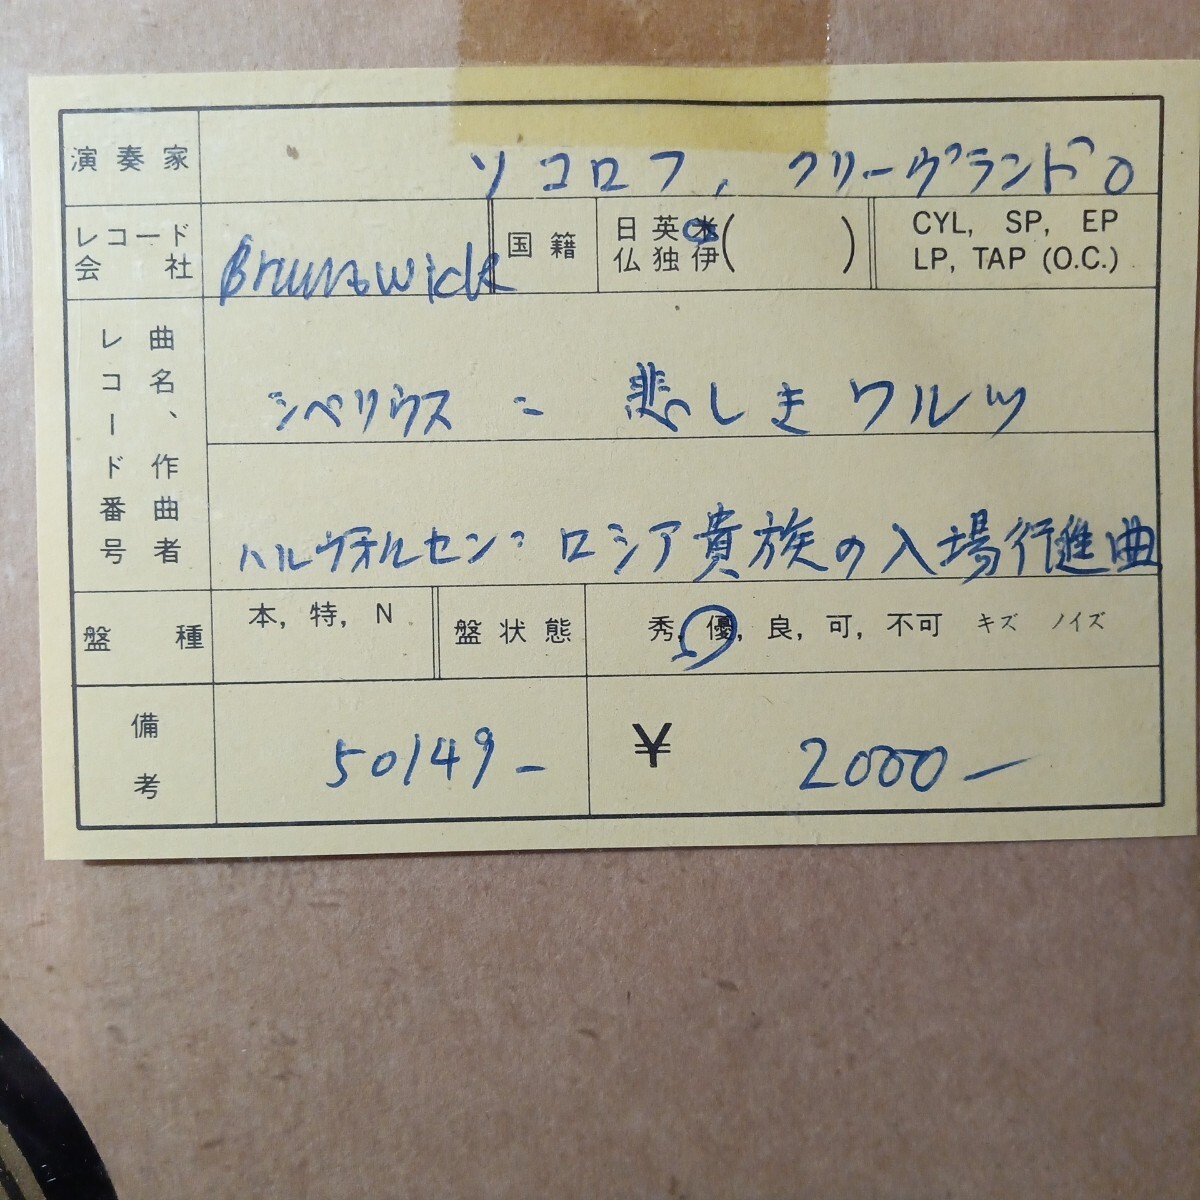 演奏家 ソコロフ, クリーヴランドO
レコード会社 Brunswick 国籍 日英米( ) CYL, SP, EP
仏独伊 LP, TAP (O.C.)
曲名、作曲者
レコード番号
シベリウス = 悲しきワルツ
ハルヴォルセン: ロシア貴族の入場行進曲
盤種 本, 特, N 盤状態 秀, 優, 良, 可, 不可 キズ ノイズ
備考 50149- ¥ 2000-